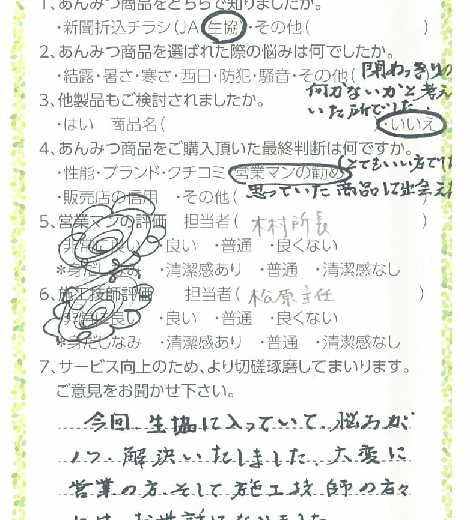 1、あんみつ商品をどちらで知りましたか。
・新聞折込チラシ(JA・生協)・その他( )
2、あんみつ商品を選ばれた際の悩みは何でしたか。
・結露・暑さ・寒さ・西日・防犯・騒音・その他(
何かないかと考え
3、他製品もご検討されましたか。
いた所でした
・はい 商品名( )・いいえ
4、あんみつ商品をご購入頂いた最終判断は何ですか。
・性能・ブランド・クチコミ・営業マンの勧め(とてもいい方で
・販売店の信用 ・その他( 思っていた商品に出会え
5、営業マンの評価 担当者( 木村所長 )
・非常に良い ・良い ・普通 ・良くない
*身だしなみ ・清潔感あり ・普通 ・清潔感なし
6、施工技師評価 担当者( 松原主任 )
・非常に良い ・良い ・普通 ・良くない
*身だしなみ ・清潔感あり ・普通 ・清潔感なし
7、サービス向上のため、より切磋琢磨してまいります。
ご意見をお聞かせ下さい。
今回、生協に入っていて、悩みが
1つ、解決いたしました。大変に
営業の方、そして施工技師の方々
には、お世話になりました